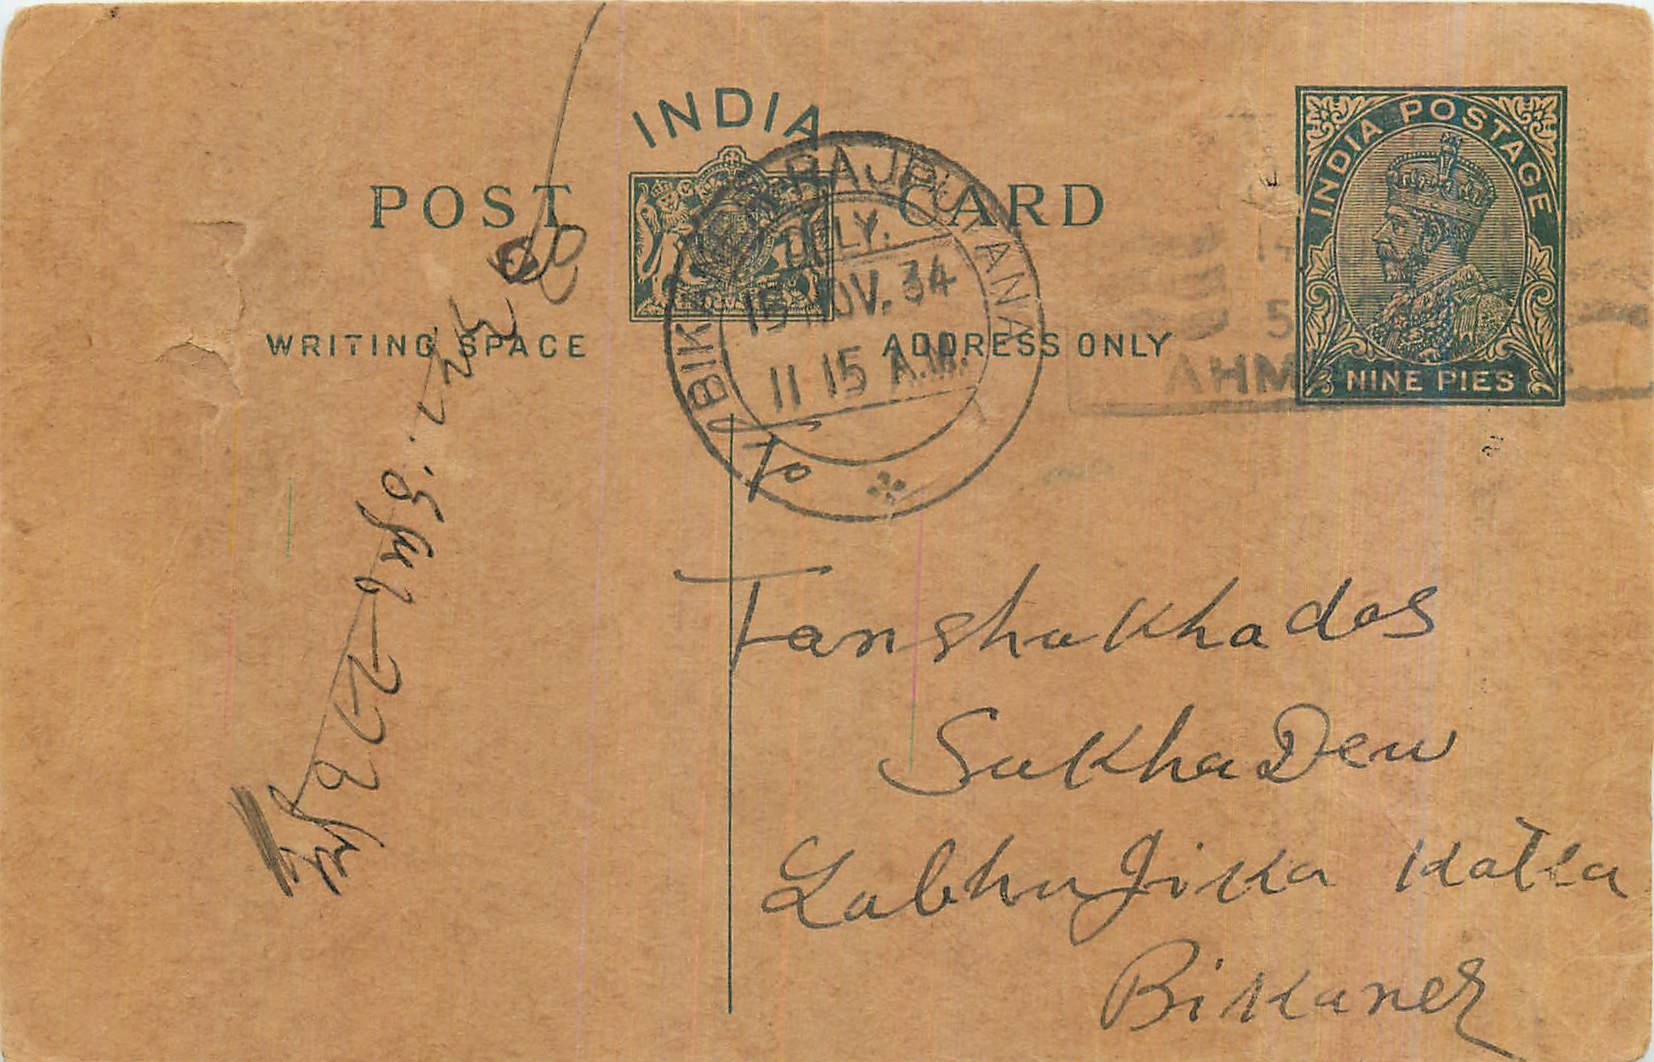 INDIA
POST CARD
WRITING SPACE ADDRESS ONLY
INDIA POSTAGE
NINE PIES
RAJPUTANA
DELY.
15 NOV. 34
11 15 A.M.
AHM
To
Tanshukhadas
SukhaDew
Labhu Jika Katla
Bikaner